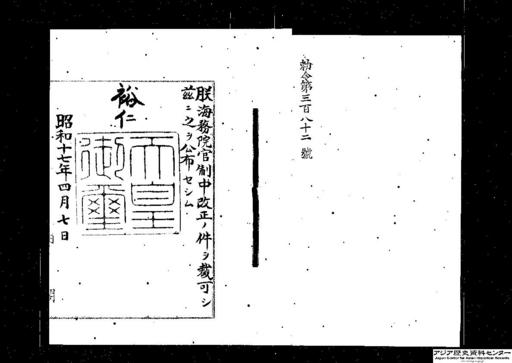 勅令第三百八十二號
朕海務院官制中改正ノ件ヲ裁可シ
茲ニ之ヲ公布セシム
裕仁
天皇
御璽
昭和十七年四月七日
アジア歴史資料センター
Japan Center for Asian Historical Records